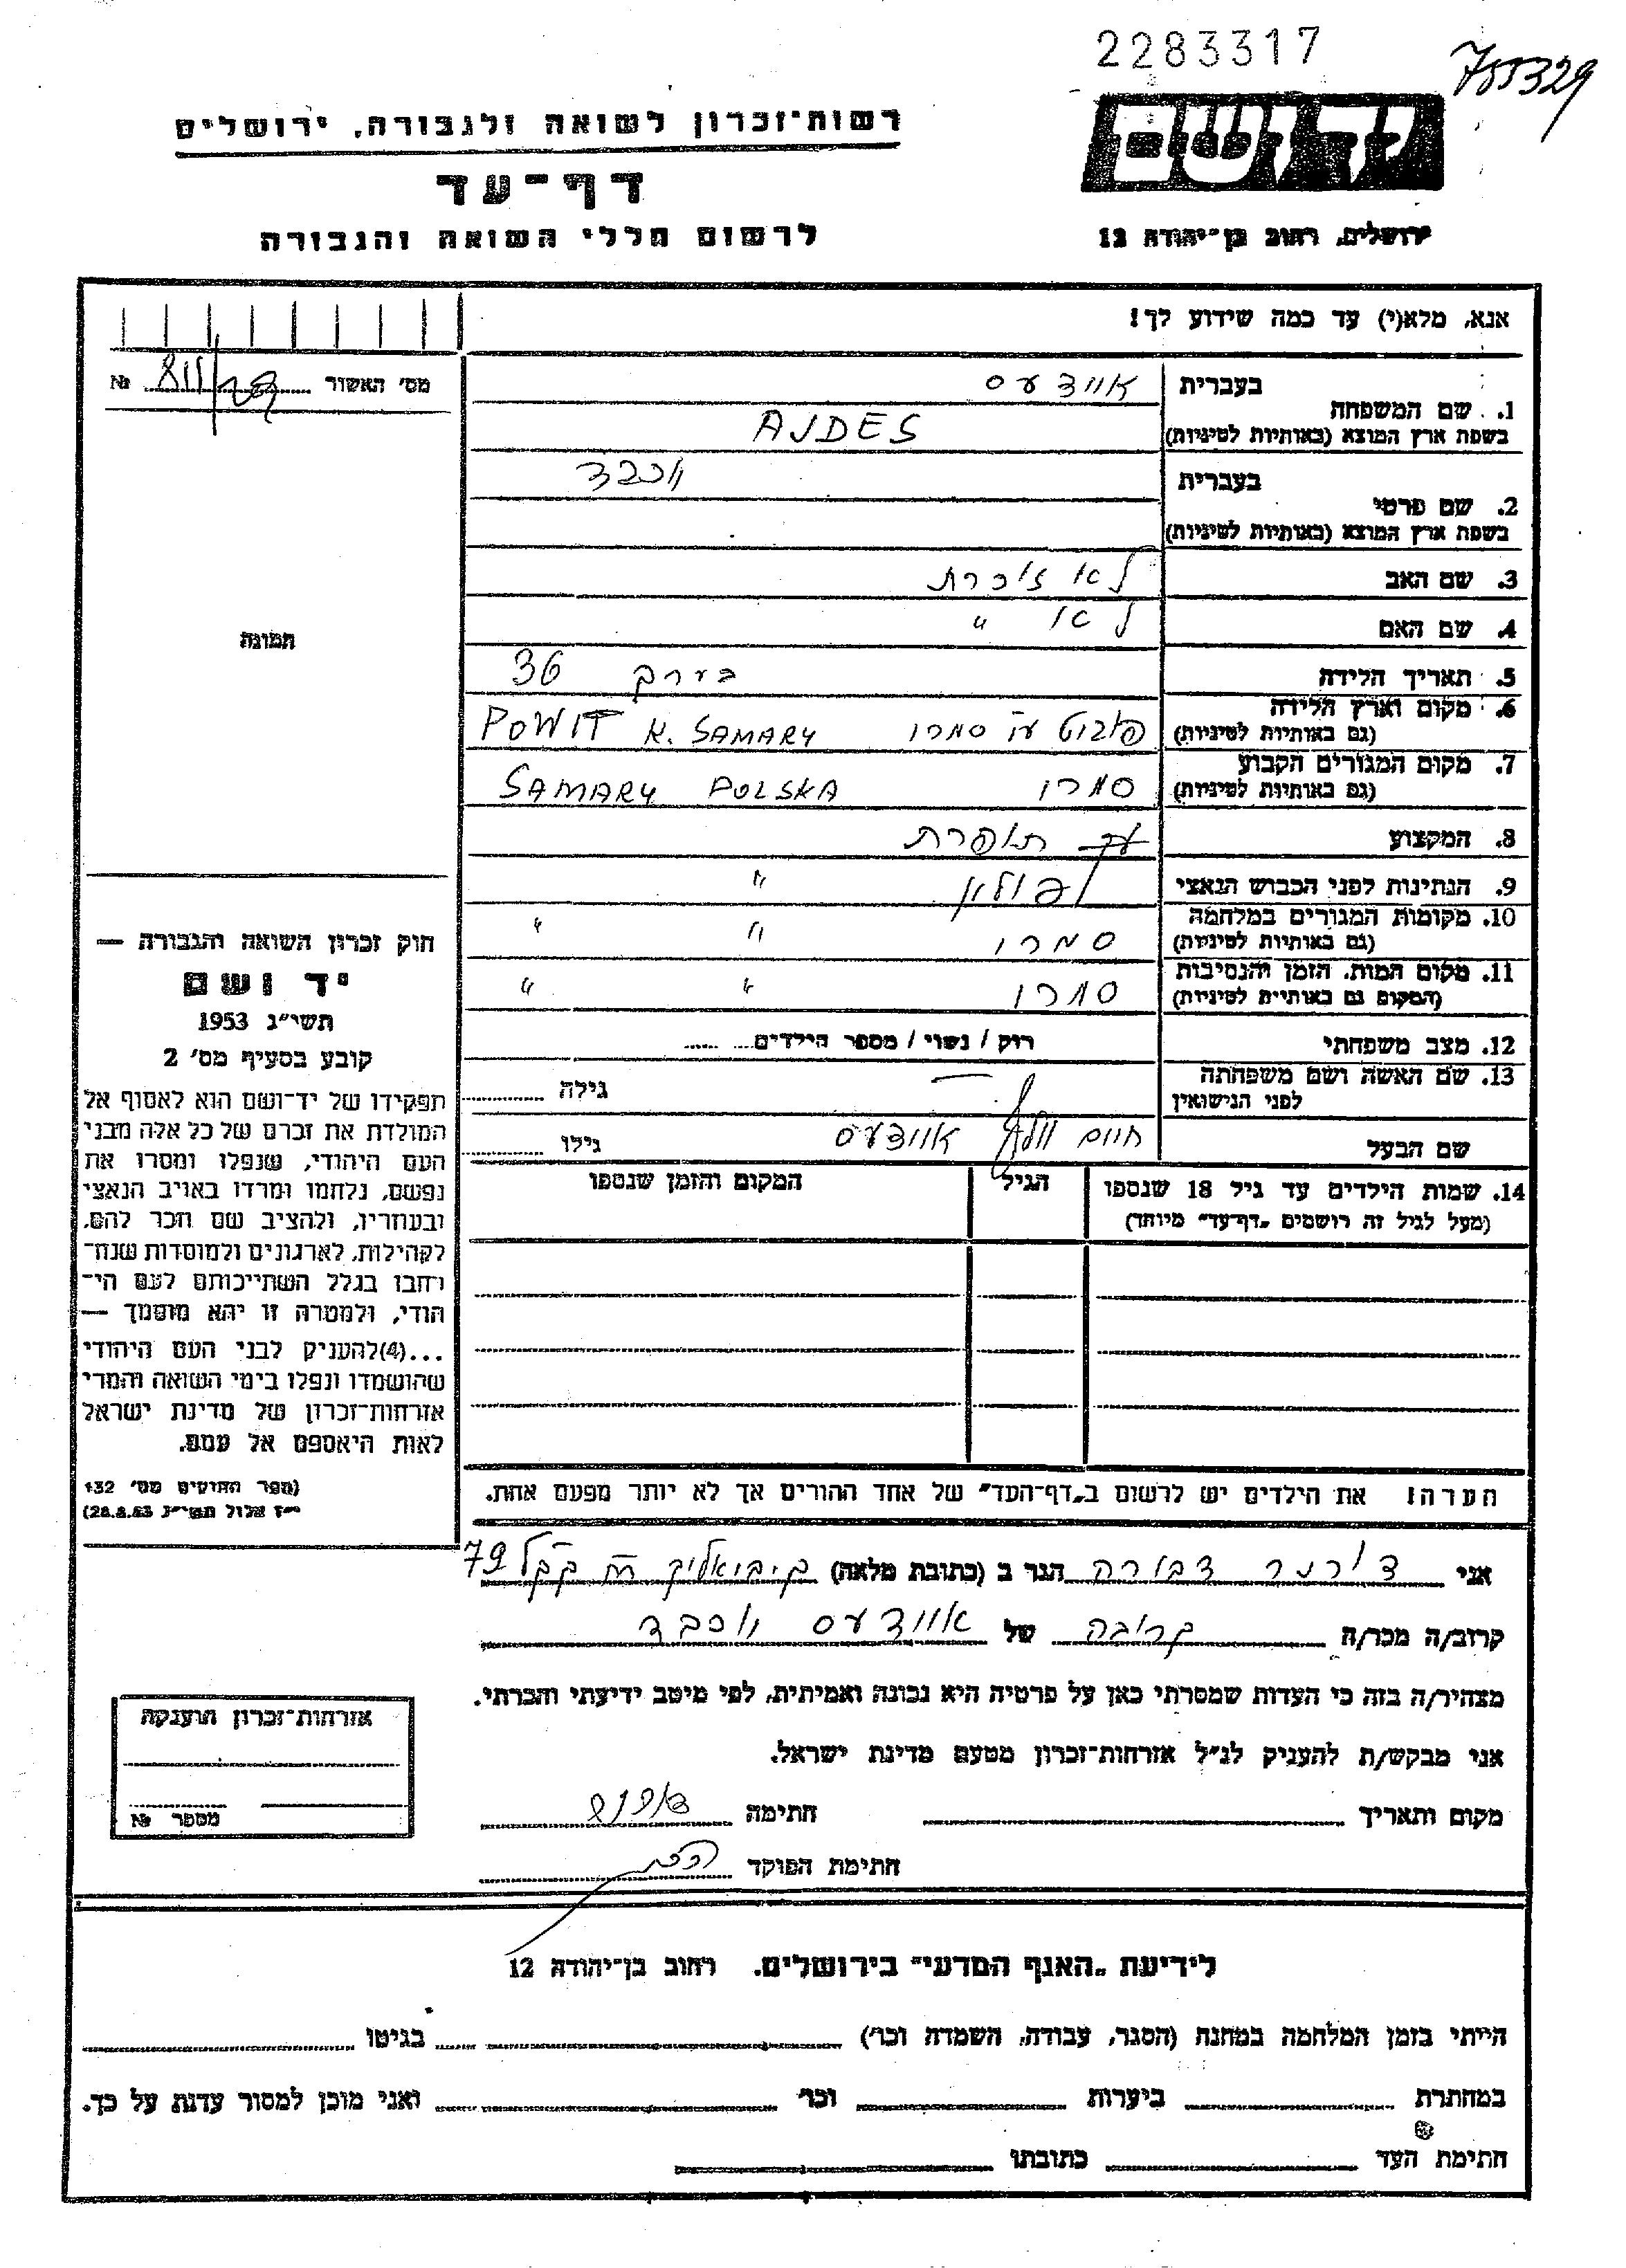 2283317
755329
רשות־זכרון לשואה ולגבורה, ירושלים
יד ושם
דף־עד
לרשום חללי השואה והגבורה
ירושלים, רחוב בן־יהודה 12
אנא, מלא(י) עד כמה שידוע לך!
מס' האשור № 811
1. שם המשפחה
בעברית איידעס
בשפת ארץ המוצא (באותיות לטיניות) AJDES
2. שם פרטי
בעברית יוכבד
בשפת ארץ המוצא (באותיות לטיניות)
3. שם האב לא זוכרת
4. שם האם לא "
תמונה
5. תאריך הלידה בערך 36
6. מקום וארץ הלידה
(גם באותיות לטיניות) סמרי POWIT K. SAMARY
7. מקום המגורים הקבוע
(גם באותיות לטיניות) סמרי SAMARY POLSKA
8. המקצוע תופרת
9. הנתינות לפני הכבוש הנאצי פולין "
10. מקומות המגורים במלחמה
(גם באותיות לטיניות) סמרי " "
11. מקום המות, הזמן והנסיבות
(המקום גם באותיות לטיניות) סמרי " "
12. מצב משפחתי רוק / נשוי / מספר הילדים
13. שם האשה ושם משפחתה
לפני הנישואין גילה
שם הבעל חיים איידעס גילו
14. שמות הילדים עד גיל 18 שנספו
(מעל לגיל זה רושמים „דף־עד" מיוחד)
הגיל
המקום והזמן שנספו
הערה! את הילדים יש לרשום ב„דף־העד" של אחד ההורים אך לא יותר מפעם אחת.
חוק זכרון השואה והגבורה —
יד ושם
תשי"ג 1953
קובע בסעיף מס' 2
תפקידו של יד־ושם הוא לאסוף אל
המולדת את זכרם של כל אלה מבני
העם היהודי, שנפלו ומסרו את
נפשם, נלחמו ומרדו באויב הנאצי
ובעוזריו, ולהציב שם וזכר להם,
לקהילות, לארגונים ולמוסדות שנח־
רבו בגלל השתייכותם לעם הי־
הודי, ולמטרה זו יהא מוסמך —
...(4)להעניק לבני העם היהודי
שהושמדו ונפלו בימי השואה והמרי
אזרחות־זכרון של מדינת ישראל
לאות היאספם אל עמם.
(ספר החוקים מס' 132
י"ז אלול תשי"ג 28.8.53)
אני דורנר דבורה הגר ב (כתובת מלאה) ק. ביאליק 79
קרוב/ה מכר/ה קרובה של איידעס יוכבד
מצהיר/ה בזה כי העדות שמסרתי כאן על פרטיה היא נכונה ואמיתית, לפי מיטב ידיעתי והכרתי.
אני מבקש/ת להעניק לנ"ל אזרחות־זכרון מטעם מדינת ישראל.
מקום ותאריך חתימה
חתימת הפוקד
אזרחות־זכרון הוענקה
מספר №
לידיעת „האגף המדעי" בירושלים, רחוב בן־יהודה 12
הייתי בזמן המלחמה במחנה (הסגר, עבודה, השמדה וכו') בגיטו
במחתרת ביערות וכו' ואני מוכן למסור עדות על כך.
חתימת העד כתובתו